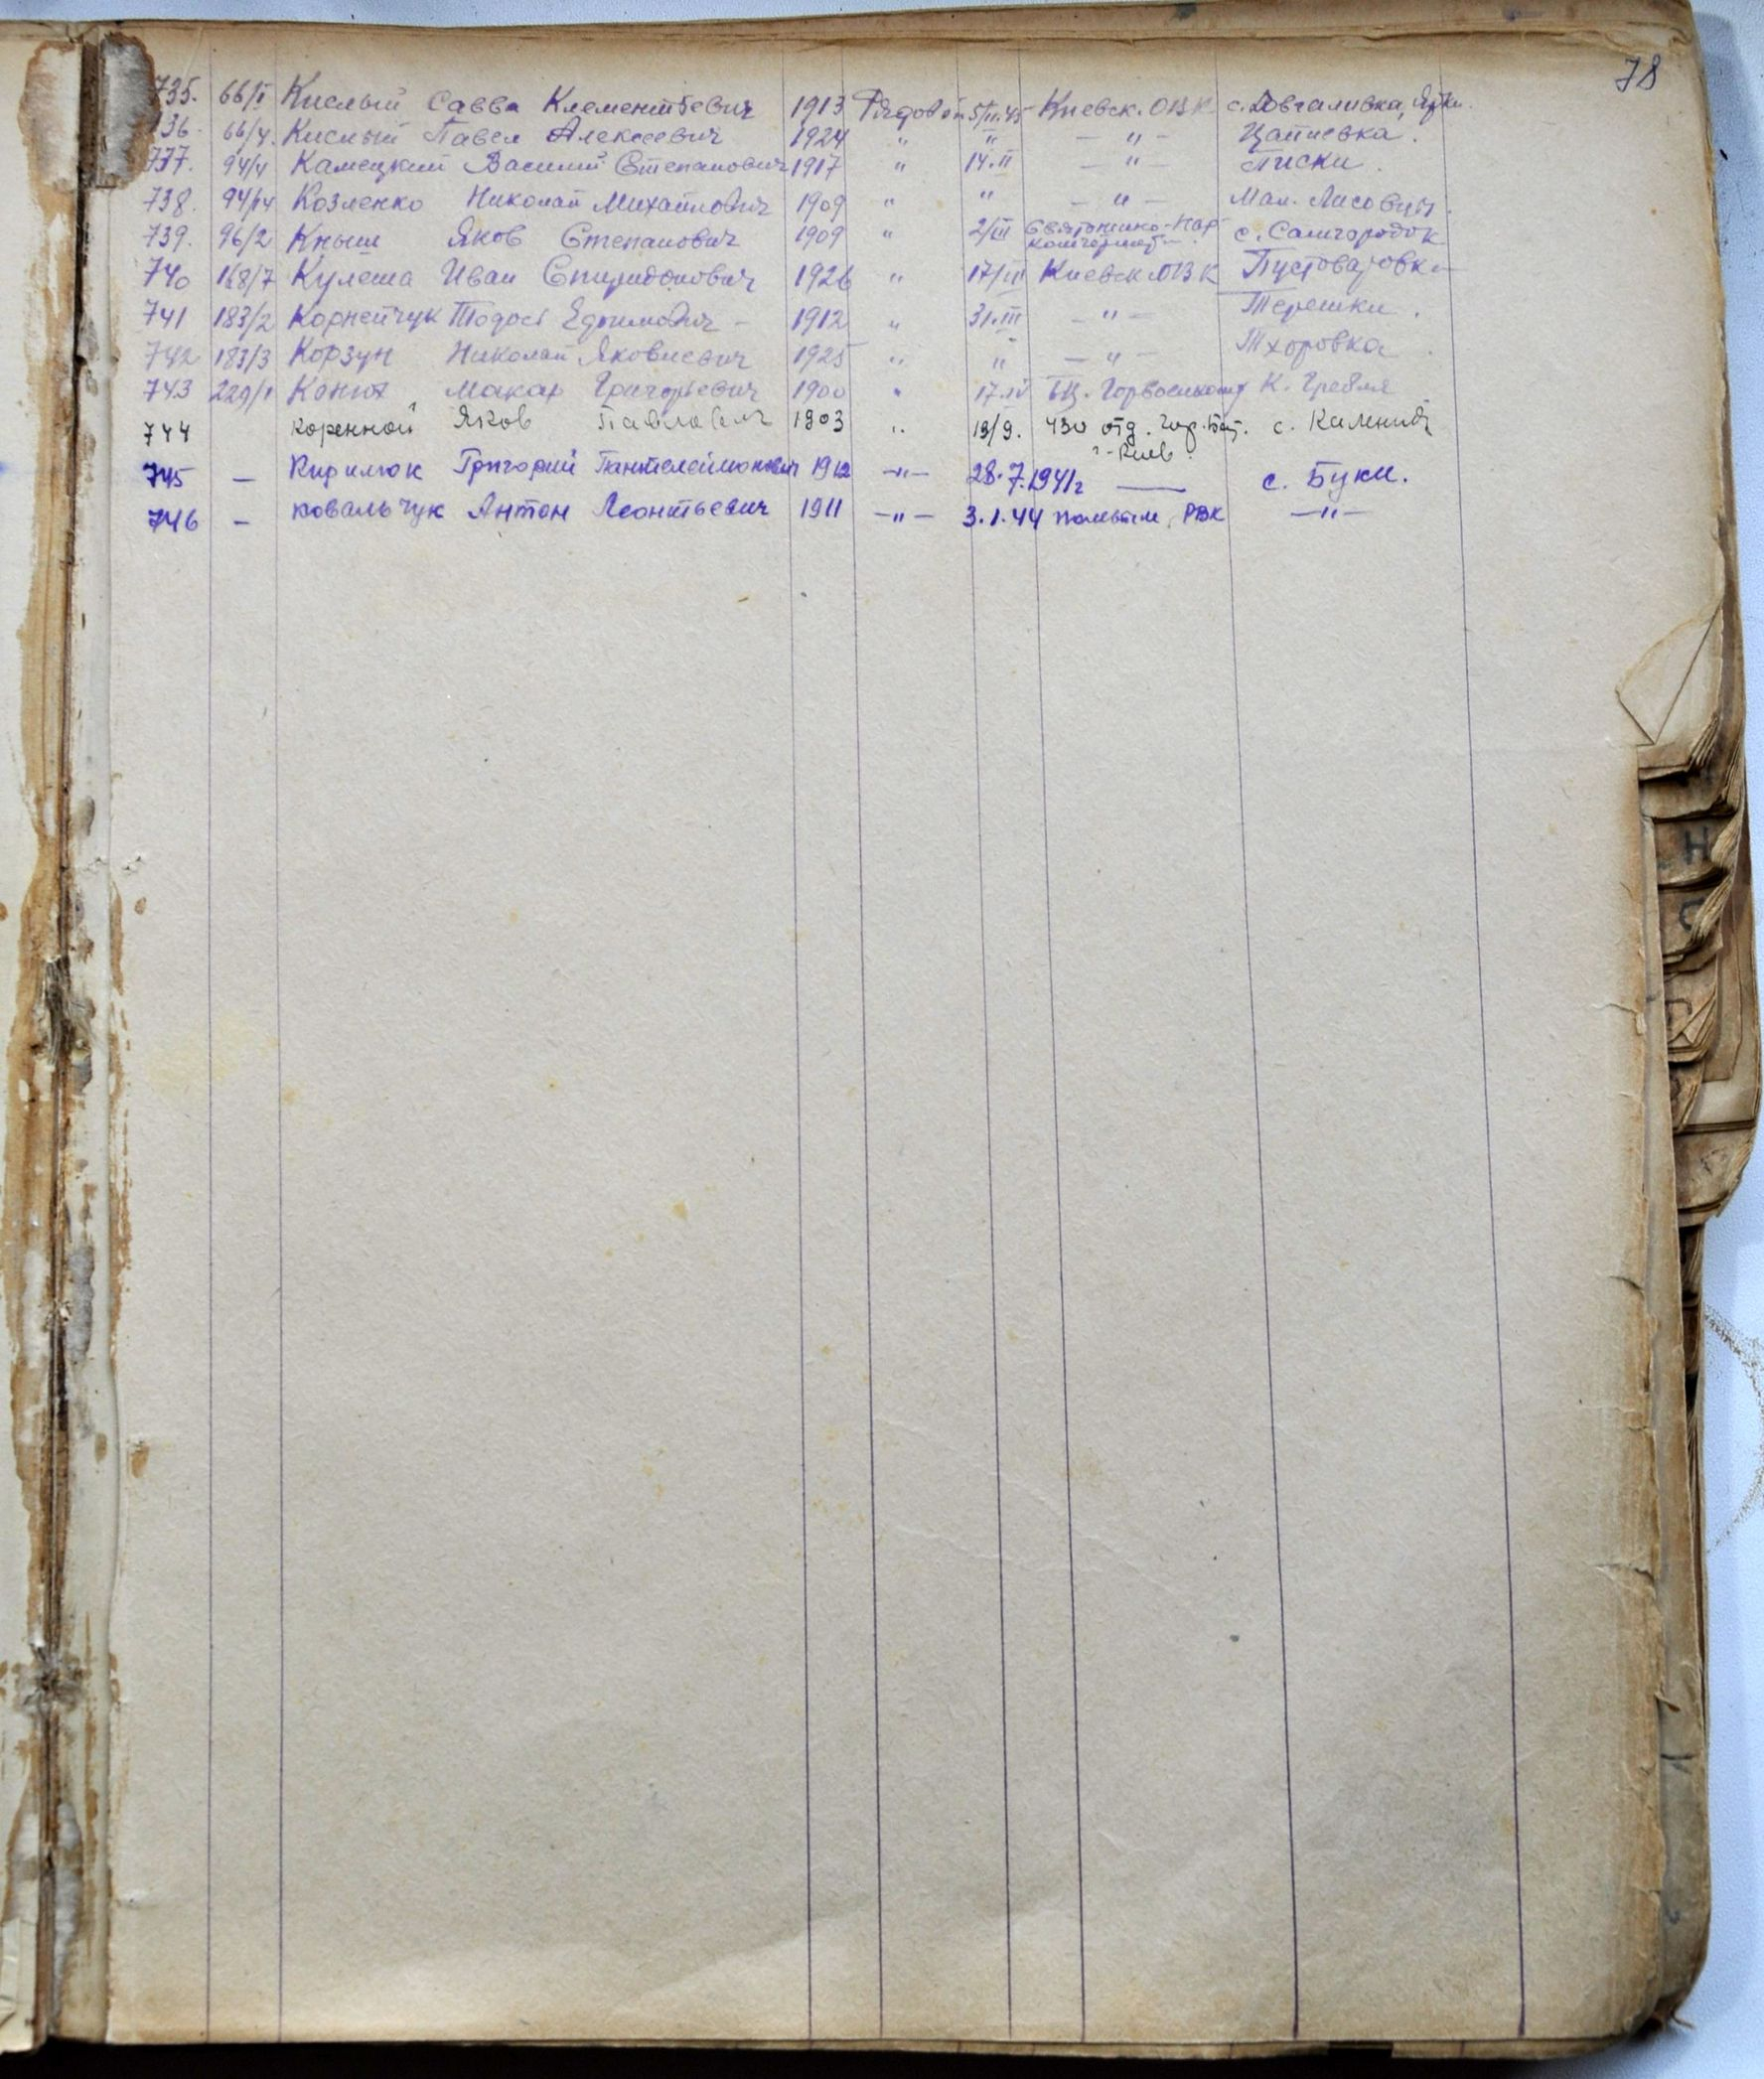 78
735. 66/1 Кислый Савва Клементьевич 1913 Рядовой 5/II.45 Киевск. ОВК с. Довгаливка,
736. 66/4. Кислый Павел Алексеевич 1924 " " — " — Цапиевка.
737. 94/4 Камецкий Василий Степанович 1917 " 14.II — " — Писки.
738. 94/14 Козленко Николай Михайлович 1909 " " — " — Мал. Лисовцы.
739. 96/2 Кныш Яков Степанович 1909 " 2/III Святошино-
с. Самгородок
740 168/7 Кулеша Иван Спиридонович 1926 " 17/III Киевск. ОВК Пустоваровка
741 183/2 Корнейчук Тодос Ефимович — 1912 " 31.III — " — Терешки.
742 183/3 Корзун Николай Яковлевич 1925 " " — " — Тхоровка.
743 229/1 Конюх Макар Григорьевич 1900 " 17.IV БЦ. Горвоенкомат К. Гребля
744 Коренной Яков Павлович 1903 " 19/9. 430 отд. Бат. с.
г. Киев.
745 — Кирилюк Григорий Пантелеймонович 1912 —"— 28.7.1941г — с. Буки.
746 — Ковальчук Антон Леонтьевич 1911 —"— 3.1.44 РВК —"—
Н
С